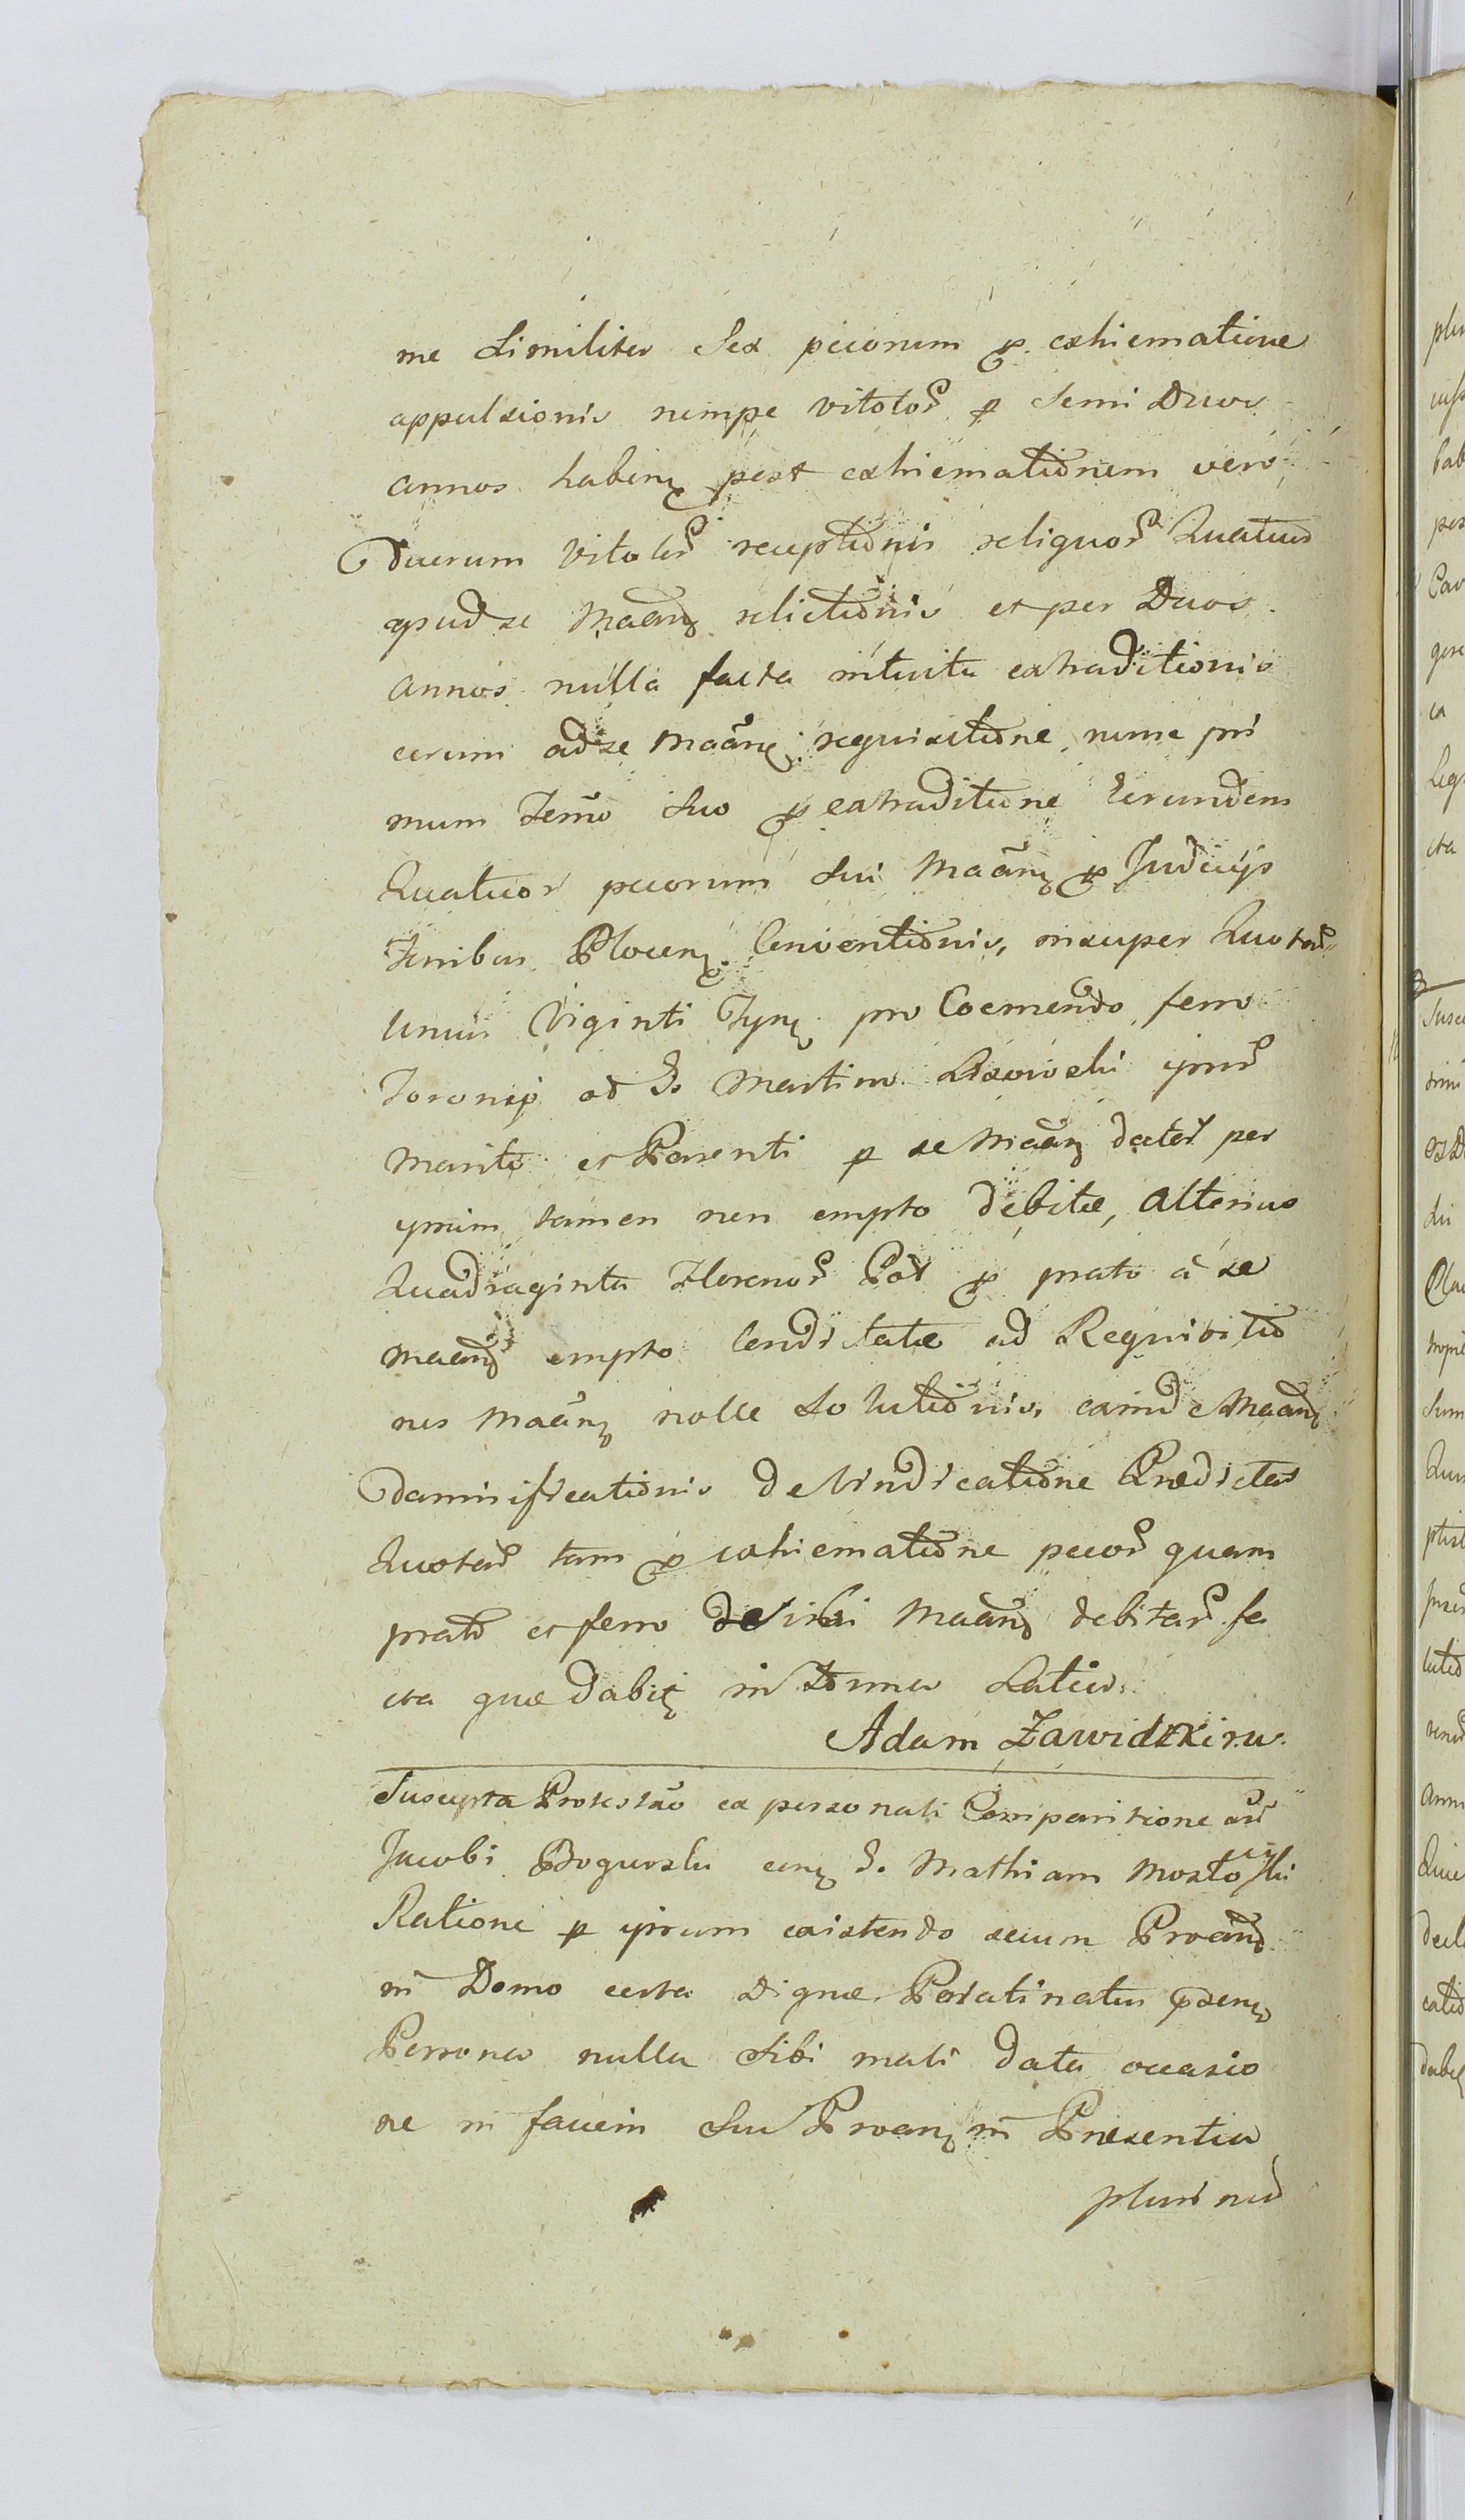 me Similiter Sex pecorum p exhiematione
appulsionis nempe vitolor p Semi Duos
annos haben post exhiemationem vero
Duorum Vitolor receptionis reliquor Quatuor
apud se Maan relictionis et per Duos
annos nulla facta intuitu extraditionis
eorum ad se Maan requisitione, nunc pri
mum Termo Suo p extraditione Eorundem
Quatuor pecorum Sui Maan p Judicijs
Plocen Conventionis, insuper Quotar
Unius Viginti Tynf pro Coemendo ferro
Toronij ad G. Martino Lisowski ipius
Marito et Parenti p se Maan dater per
ipsum tamen non empto debitæ, alterius
Quadraginta Florenor Pol p prato à se
maan empto Conditatæ ad Requisitio
nes Maan nolle Solutionis, eamd Maan
Damnificationis de Vindicatione Prædictar
Quotar tam p exhiematione pecor quam
prato et ferro de Sibi Maan debitar fa
cta quæ dabit in Termo Latius.
Adam Zawidzki m.
Suscepta Protestao ex personali Comparitione
Jacobi Boguski con G. Mathiam Mostowski
Ratione p ipsum existendo secum Proand
in Domo certa Dignæ Palatinatus Personæ
Persona nulla Sibi mali data occasio
ne in faciem Sui Proan in Præsentia
pluri